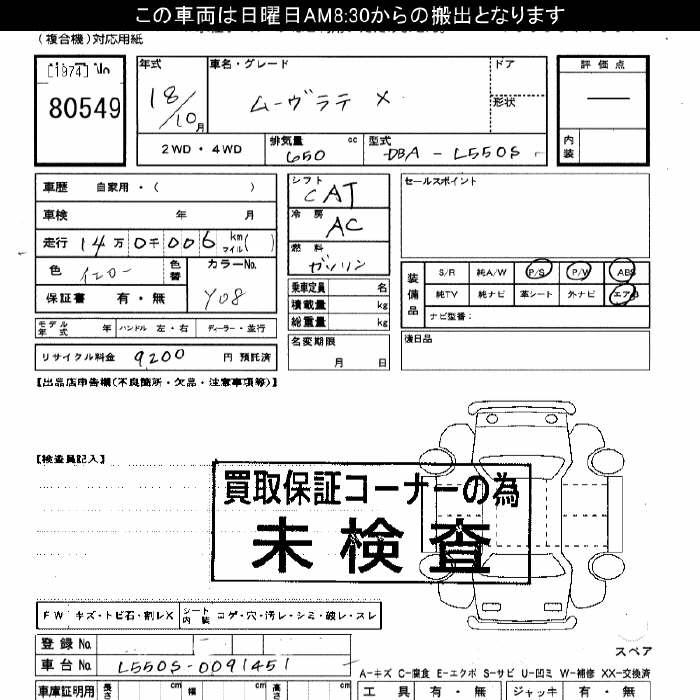 この車両は日曜日AM8:30からの搬出となります
(複合機)対応用紙
[1974] No
80549
年式 車名・グレード ドア 評価点
18/10月 ムーヴラテ X 形状
2WD・4WD 排気量 650 cc 型式 DBA-L550S 内装
車歴 自家用・( ) シフト CAT セールスポイント
車検 年 月 冷房 AC
走行 14万0千006 km マイル( ) 燃料 ガソリン
色 イエロー 色替 カラーNo. Y08
装備品 S/R 純A/W P/S P/W ABS
保証書 有・無 乗車定員 名 純TV 純ナビ 革シート 外ナビ エアB
積載量 kg ナビ型番:
モデル年式 年 ハンドル 左・右 ディーラー・並行 総重量 kg
リサイクル料金 9200 円 預託済 名変期限 月 日 後日品
【出品店申告欄(不良箇所・欠品・注意事項等)】
【検査員記入】
買取保証コーナーの為
未検査
FW キズ・トビ石・割レX シート内装 コゲ・穴・汚レ・シミ・破レ・スレ
登録No. スペア
車台No. L550S-0091451
A-キズ C-腐食 E-エクボ S-サビ U-凹ミ W-補修 XX-交換済
車庫証明用 長さ cm 幅 cm 高さ cm 工具 有・無 ジャッキ 有・無